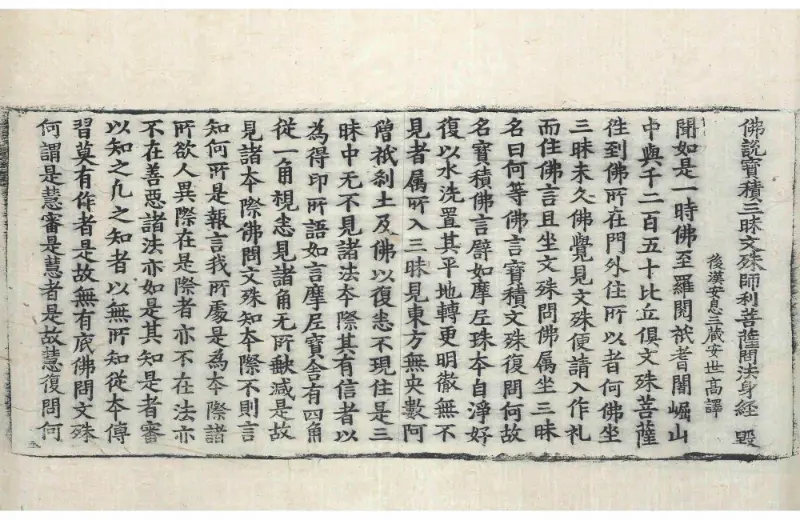 佛說寶積三昧文殊師利菩薩問法身經 毀
後漢安息三藏安世高譯
聞如是一時佛至羅閱祇耆闍崛山
中與千二百五十比丘俱文殊菩薩
徃到佛所在門外住所以者何佛坐
三昧未久佛覺見文殊便請入作礼
而住佛言且坐文殊問佛属坐三昧
名曰何等佛言寶積文殊復問何故
名寶積佛言譬如摩尼珠夲自淨好
復以水洗置其平地轉更明徹無不
見者属所入三昧見東方無央數阿
僧祇刹土及佛以復悉不現住是三
昧中无不見諸法夲際其有信者以
為得印所語如言摩尼寶舍有四角
從一角視悉見諸角无所缺減是故
見諸夲際佛問文殊知夲際不則言
知何所是報言我所處是為夲際諸
所欲人異際在是際者亦不在法亦
不在善惡諸法亦如是其知是者審
以知之凡之知者以無所知從夲傳
習莫有作者是故無有底佛問文殊
何謂是慧審是慧者是故慧復問何